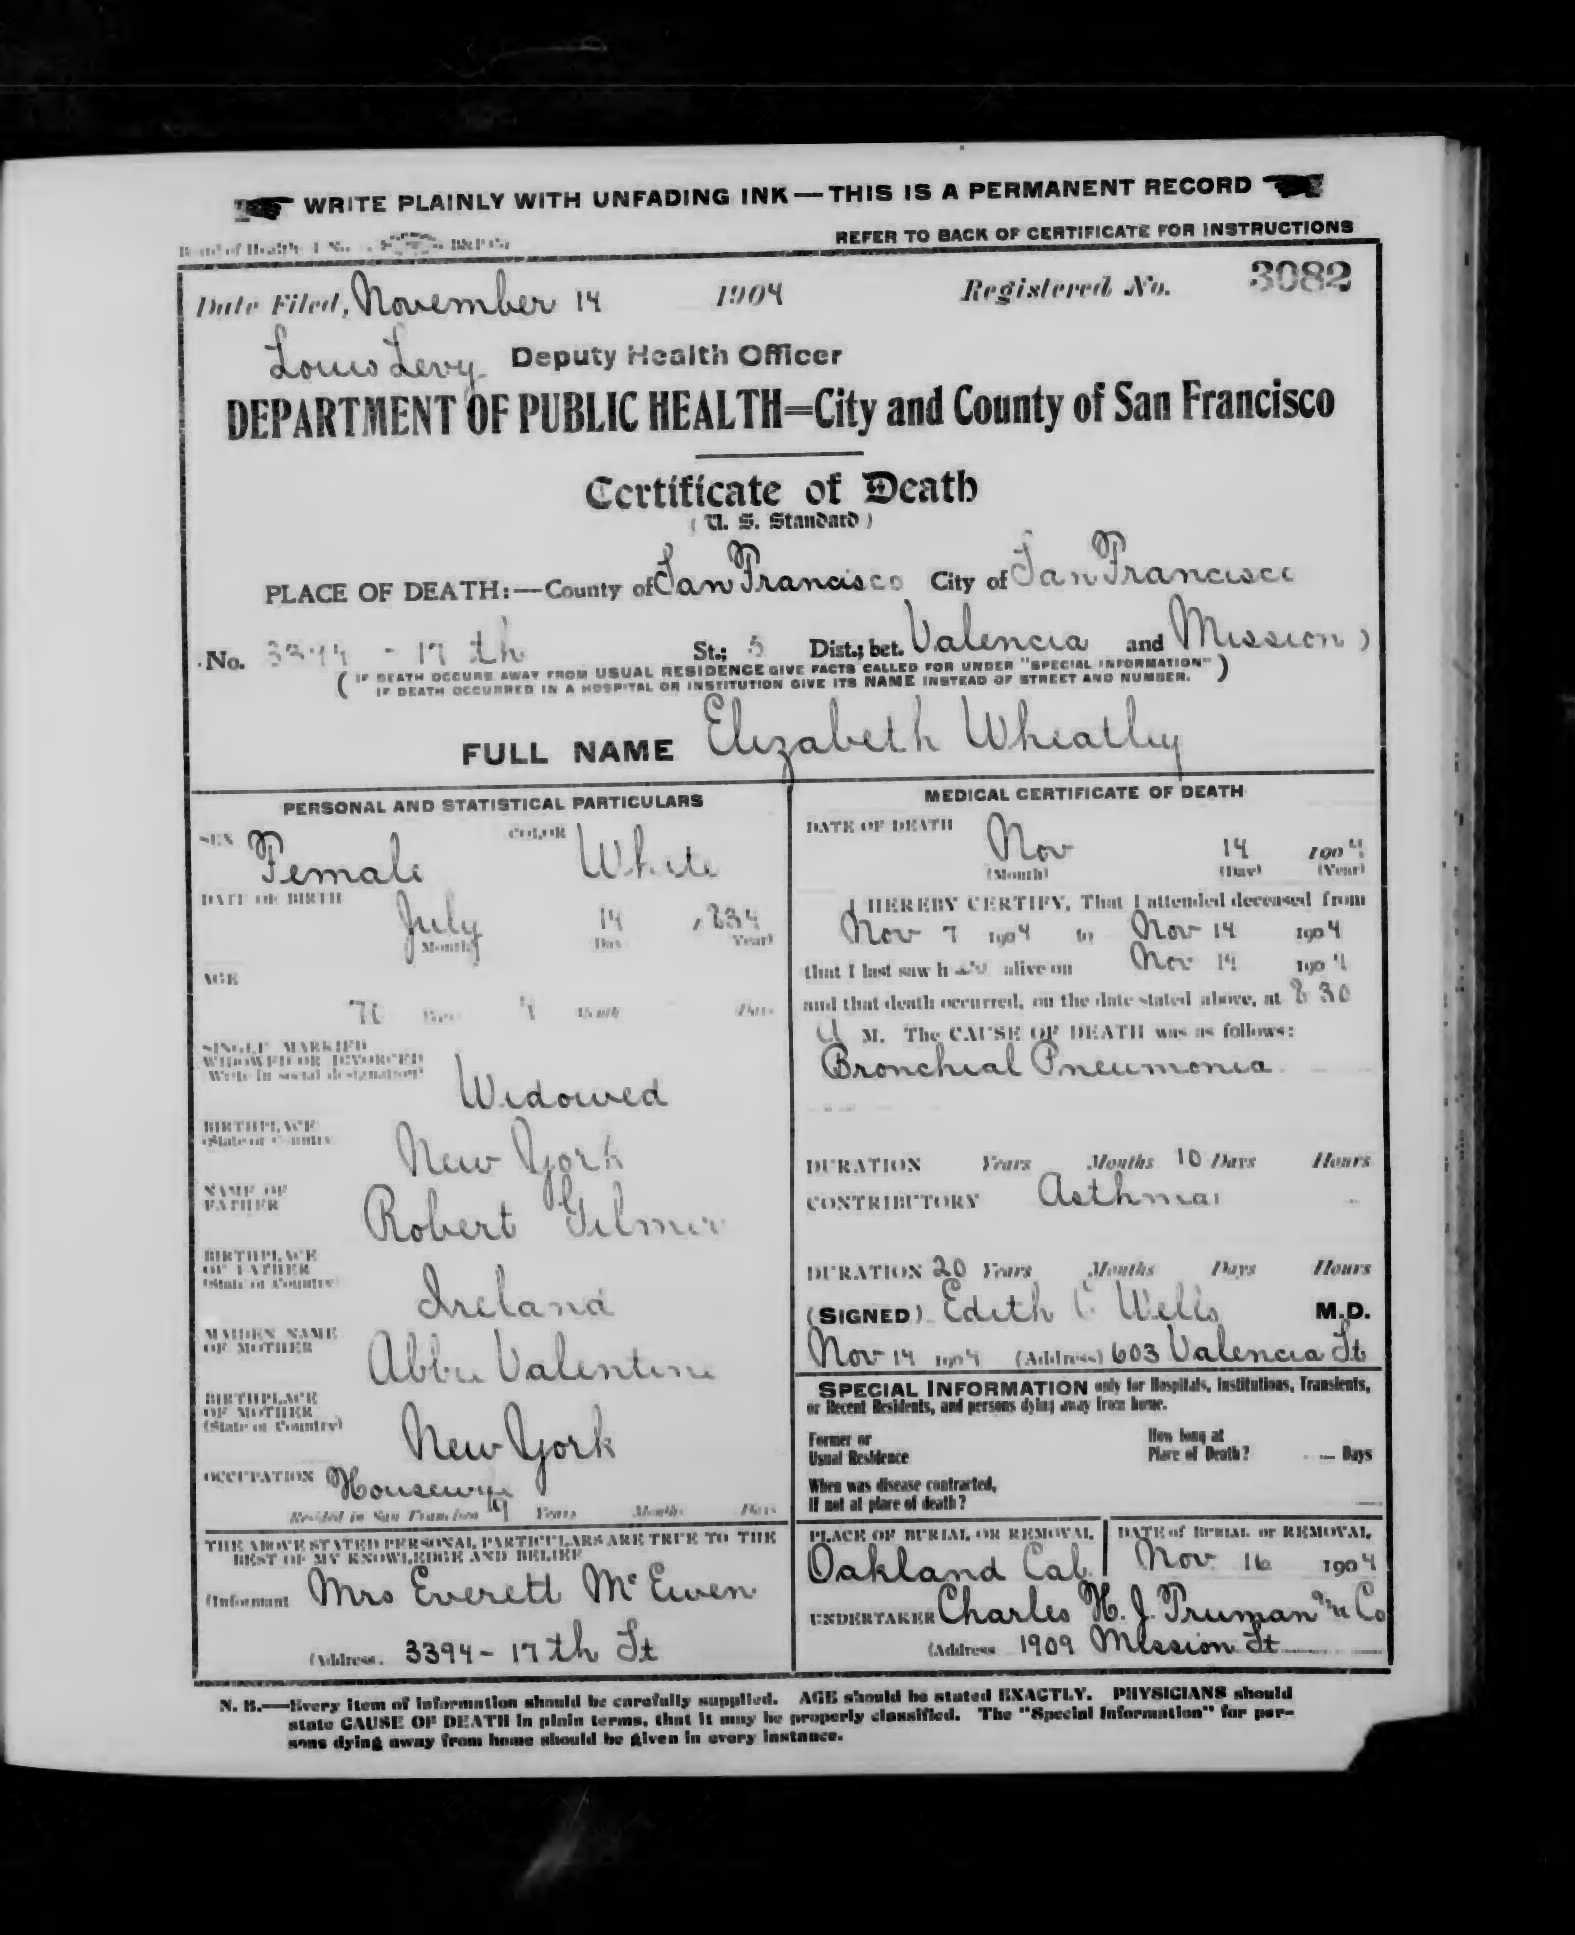 WRITE PLAINLY WITH UNFADING INK—THIS IS A PERMANENT RECORD
Board of Health B&P Co
REFER TO BACK OF CERTIFICATE FOR INSTRUCTIONS
Date Filed, November 14 1904 Registered No. 3082
Louis Levy Deputy Health Officer
DEPARTMENT OF PUBLIC HEALTH=City and County of San Francisco
Certificate of Death
(U. S. Standard)
PLACE OF DEATH:—County of San Francisco City of San Francisco
No. 3394 - 17 th St.; 5 Dist.; bet. Valencia and Mission)
(IF DEATH OCCURS AWAY FROM USUAL RESIDENCE GIVE FACTS CALLED FOR UNDER "SPECIAL INFORMATION"
IF DEATH OCCURRED IN A HOSPITAL OR INSTITUTION GIVE ITS NAME INSTEAD OF STREET AND NUMBER.)
FULL NAME Elizabeth Wheatley
PERSONAL AND STATISTICAL PARTICULARS
SEX Female COLOR White
DATE OF BIRTH July 14 1834
(Month) (Day) (Year)
AGE
70 Years 4 Months Days
SINGLE MARRIED
WIDOWED OR DIVORCED
(Write in social designation)
Widowed
BIRTHPLACE
(State or Country)
New York
NAME OF
FATHER
Robert Gilmer
BIRTHPLACE
OF FATHER
(State or Country)
Ireland
MAIDEN NAME
OF MOTHER
Abbie Valentine
BIRTHPLACE
OF MOTHER
(State or Country)
New York
OCCUPATION Housewife
Resided in San Francisco 19 Years Months Days
THE ABOVE STATED PERSONAL PARTICULARS ARE TRUE TO THE
BEST OF MY KNOWLEDGE AND BELIEF
(Informant Mrs Everett McEwen
(Address. 3394 - 17th St
MEDICAL CERTIFICATE OF DEATH
DATE OF DEATH Nov 14 1904
(Month) (Day) (Year)
I HEREBY CERTIFY, That I attended deceased from
Nov 7 1904 to Nov 14 1904
that I last saw her alive on Nov 14 1904
and that death occurred, on the date stated above, at 8 30
a M. The CAUSE OF DEATH was as follows:
Bronchial Pneumonia
DURATION Years Months 10 Days Hours
CONTRIBUTORY Asthma
DURATION 20 Years Months Days Hours
(SIGNED) Edith C Wells M.D.
Nov 14 1904 (Address) 603 Valencia St
SPECIAL INFORMATION only for Hospitals, Institutions, Transients,
or Recent Residents, and persons dying away from home.
Former or
Usual Residence
How long at
Place of Death? Days
When was disease contracted,
If not at place of death?
PLACE OF BURIAL OR REMOVAL
Oakland Cal.
DATE of BURIAL or REMOVAL
Nov. 16 1904
UNDERTAKER Charles H. J. Truman & Co
(Address 1909 Mission St
N. B.—Every item of information should be carefully supplied. AGE should be stated EXACTLY. PHYSICIANS should
state CAUSE OF DEATH in plain terms, that it may be properly classified. The "Special Information" for per-
sons dying away from home should be given in every instance.